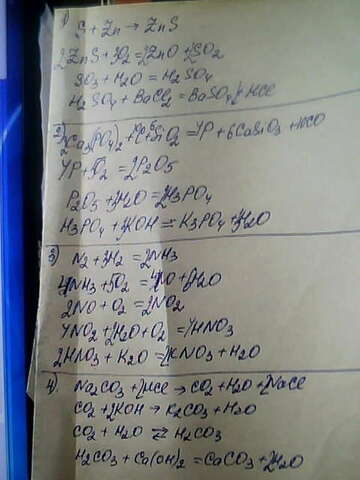 1) S + Zn → ZnS
2ZnS + 3O2 = 2ZnO + 2SO2
SO3 + H2O = H2SO4
H2SO4 + BaCl2 = BaSO4 + 2HCl
2) 2Ca3(PO4)2 + 10C + 6SiO2 = 4P + 6CaSiO3 + 10CO
4P + 5O2 = 2P2O5
P2O5 + 3H2O = 2H3PO4
H3PO4 + 3KOH = K3PO4 + 3H2O
3) N2 + 3H2 = 2NH3
4NH3 + 5O2 = 4NO + 6H2O
2NO + O2 = 2NO2
4NO2 + 2H2O + O2 = 4HNO3
2HNO3 + K2O = 2KNO3 + H2O
4) Na2CO3 + 2HCl → CO2 + H2O + 2NaCl
CO2 + 2KOH → K2CO3 + H2O
CO2 + H2O ⇄ H2CO3
H2CO3 + Ca(OH)2 = CaCO3 + 2H2O